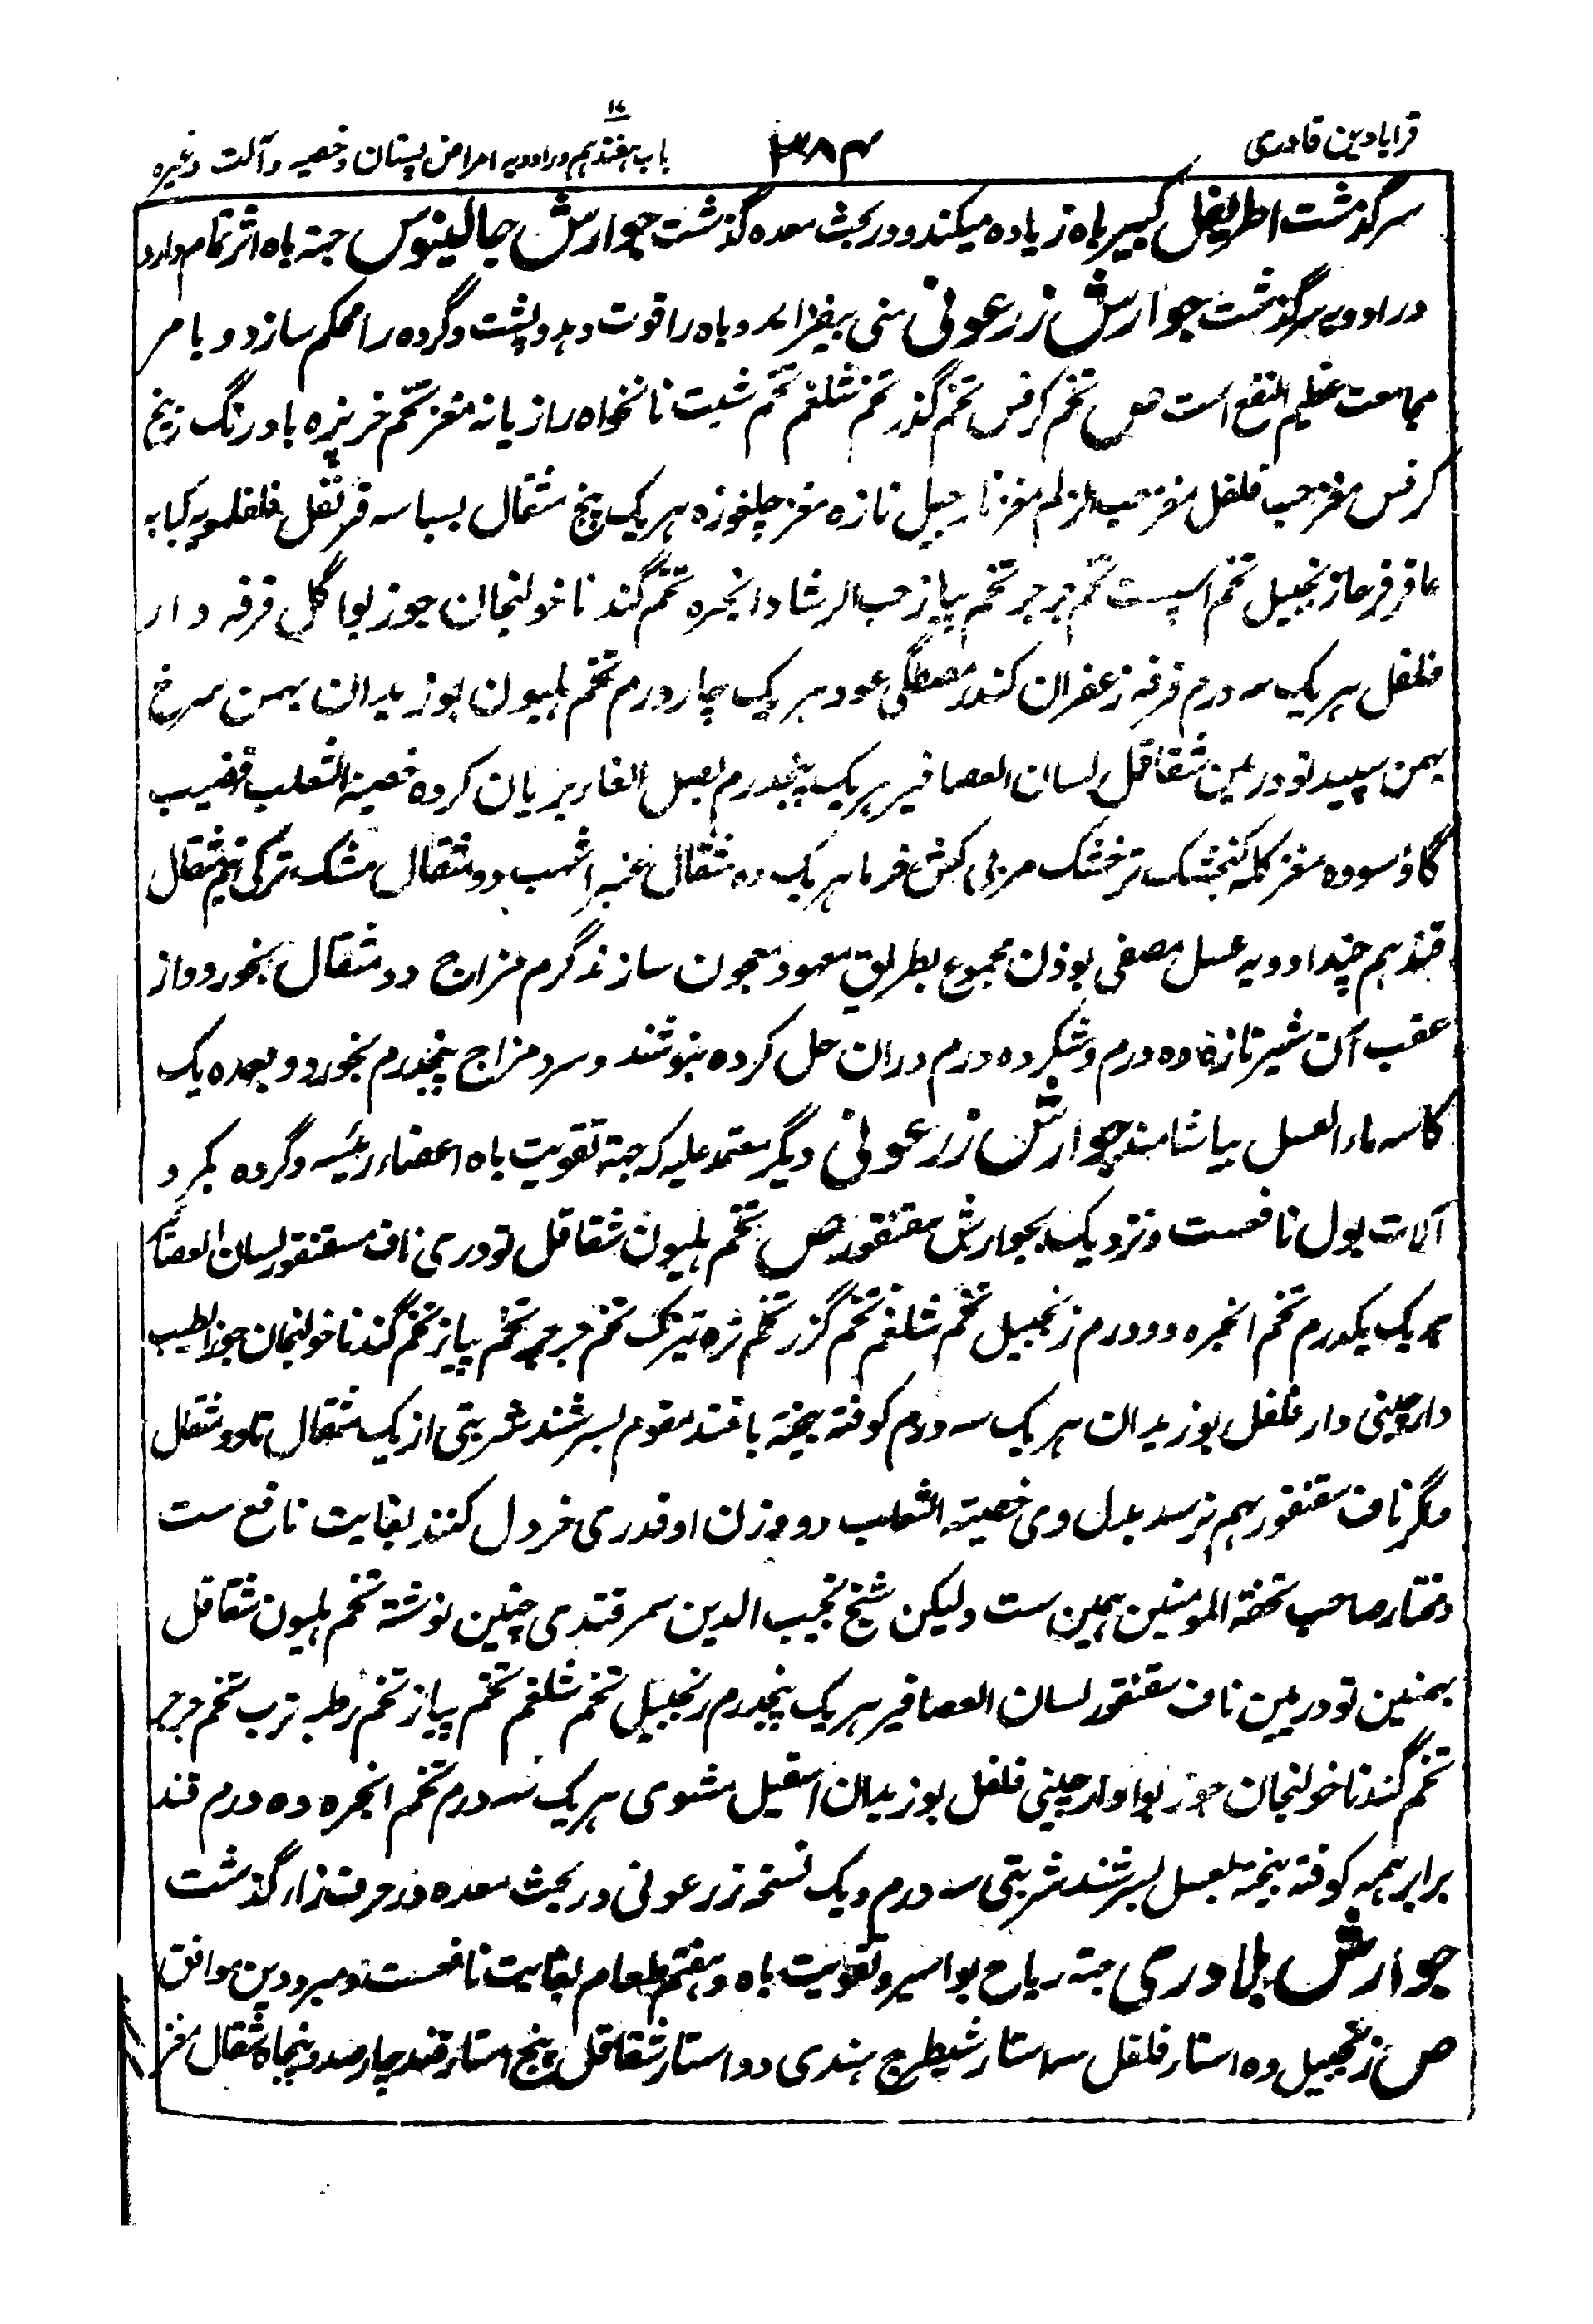 قرابادین قادری
۳۸۴
۱۷
باب هفتدهم در ادویه امراض پستان و خصیه و آلت و غیره
سرگذشت اطریفل کبیر باه زیاده میکند و در بحث معده گذشت جوارش جالینوس جهته باه اثر تمام دارد
در ادویه سرگذشت جوارش زرعونی منی بیفزاید و باه را قوت دهد و پشت و گرده را محکم سازد و بامر
مجامعت عظیم النفع است ص تخم کرفس تخم گذر تخم شلغم تخم شبت نانخواه رازیانه مغز تخم خرپزه بادرنگ بیخ
کرفس مغز حب فلفل مغز حب الزلم مغز نارجیل تازه مغز چلغوزه هر یک پنج مثقال بسباسه قرنفل فلفلمویه کبابه
عاقرقرحا زنجبیل تخم اسپست تخم جرجر تخم پیاز حب الرشاد انجره تخم گندنا خولنجان جوزبوا گل قرفه دار
فلفل هر یک سه درم قرفه زعفران کندر مصطگی عود هر یک چار درم تخم هلیون بوزیدان بهمن سرخ
بهمن سپید تودرین شقاقل لسان العصافیر هر یک پنجدرم بصل الفار بریان کرده خصیة الثعلب قضیب
گاؤ سوده مغز کله کنجشک ترخشک مربی کش خرما هر یک ده مثقال عنبر اشهب دو مثقال مشک ترکی نیم مثقال
قند هم چند ادویه عسل مصفی بوذن مجموع بطریق معهود معجون سازند گرم مزاج دو مثقال بخورد و از
عقب آن شیر تازه ده درم و شکر ده درم دران حل کرده بنوشند و سرد مزاج پنجدرم بخورد و بعده یک
کاسه ماء العسل بیاشامند جوارش زرعونی دیگر معتمد علیه که جهته تقویت باه اعضاء رئیسه و گرده کمر و
آلات بول نافعست و نزدیک بجوارش سقنقور ص تخم هلیون شقاقل تودری ناف سقنقور لسان العصا
هر یک یکدرم تخم انجره دو درم زنجبیل تخم شلغم تخم گزر تخم تره تیزک تخم جرجر تخم پیاز تخم گندنا خولنجان جوز الطیب
دارچینی دار فلفل بوزیدان هر یک سه درم کوفته بیخته با قند مقوم بسرشند شربتی از یک مثقال تا دو مثقال
مگر ناف سقنقور بهم نرسد بدل وی خصیة الثعلب دو وزن او قدری خردل کنند بغایت نافع ست
و مختار صاحب تحفة المومنین همین ست و لیکن شیخ نجیب الدین سمرقندی چنین نوشته تخم هلیون شقاقل
بهمنین تودریین ناف سقنقور لسان العصافیر هر یک پنجدرم زنجبیل تخم شلغم تخم پیاز تخم رطبه ترب تخم جرجر
تخم گندنا خولنجان جوزبوا دارچینی فلفل بوزیدان اسقیل مشوی هر یک سه درم تخم انجره ده درم قند
برابر همه کوفته بیخته بعسل بسرشند شربتی سه درم و یک نسخه زرعونی در بحث معده در حرف زا گذشت
جوارش بلادری جهته ریاح بواسیر و تقویت باه و هضم طعام بغایت نافعست و مبرودین موافق
ص زنجبیل ده استار فلفل سه استار شیطرج هندی دو استار شقاقل پنج استار قند چارصد و پنجاه مثقال مغز